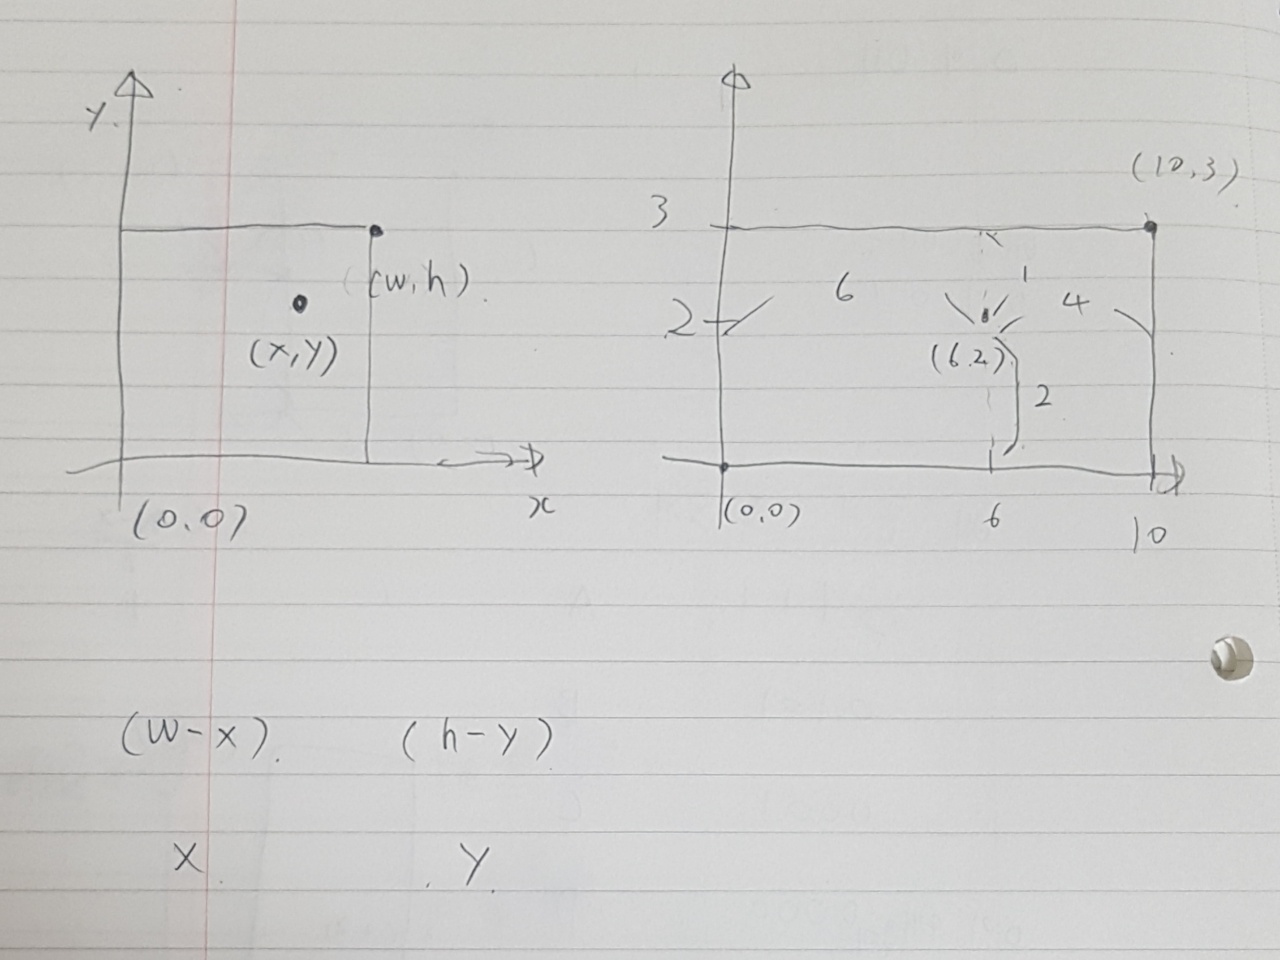 y.
(10,3)
3
(w,h).
6
1
4
2
(x,y)
(6.2)
2
x
(0,0)
(0,0)
6
10
(w-x). (h-y)
x. y.